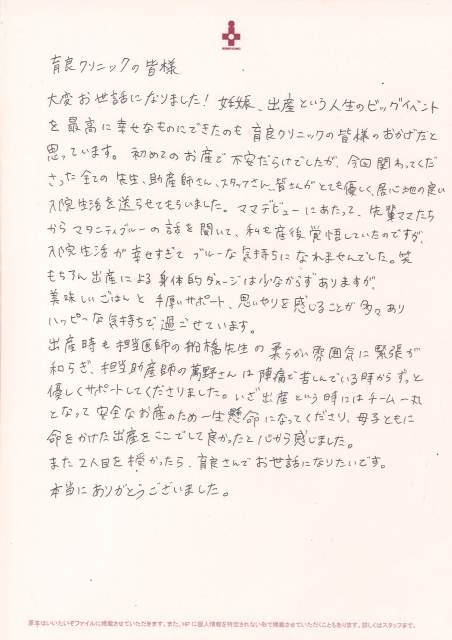 育良クリニックの皆様
大変お世話になりました！妊娠、出産という人生のビッグイベント
を最高に幸せなものにできたのも育良クリニックの皆様のおかげだと
思っています。初めてのお産で不安だらけでしたが、今回関わってくだ
さった全ての先生、助産師さん、スタッフさん、皆さんがとても優しく、居心地の良い
入院生活を送らせてもらいました。ママデビューにあたって、先輩ママたち
からマタニティブルーの話を聞いて、私も産後覚悟していたのですが、
入院生活が幸せすぎてブルーな気持ちになれませんでした。笑
もちろん出産による身体的ダメージは少なからずありますが、
美味しいごはんと手厚いサポート、思いやりを感じることが多々あり
ハッピーな気持ちで過ごせています。
出産時も担当医師の船橋先生の柔らかい雰囲気に緊張が
和らぎ、担当助産師の萬野さんは陣痛で苦しんでいる時からずっと
優しくサポートしてくださりました。いざ出産という時にはチーム一丸
となって安全なお産のため一生懸命になってくださり、母子ともに
命をかけた出産をここでして良かったと心から感じました。
また2人目を授かったら、育良さんでお世話になりたいです。
本当にありがとうございました。
原本はいいたいぞファイルに掲載させていただきます。また、HPに個人情報を特定されない形で掲載させていただくこともあります。詳しくはスタッフまで。